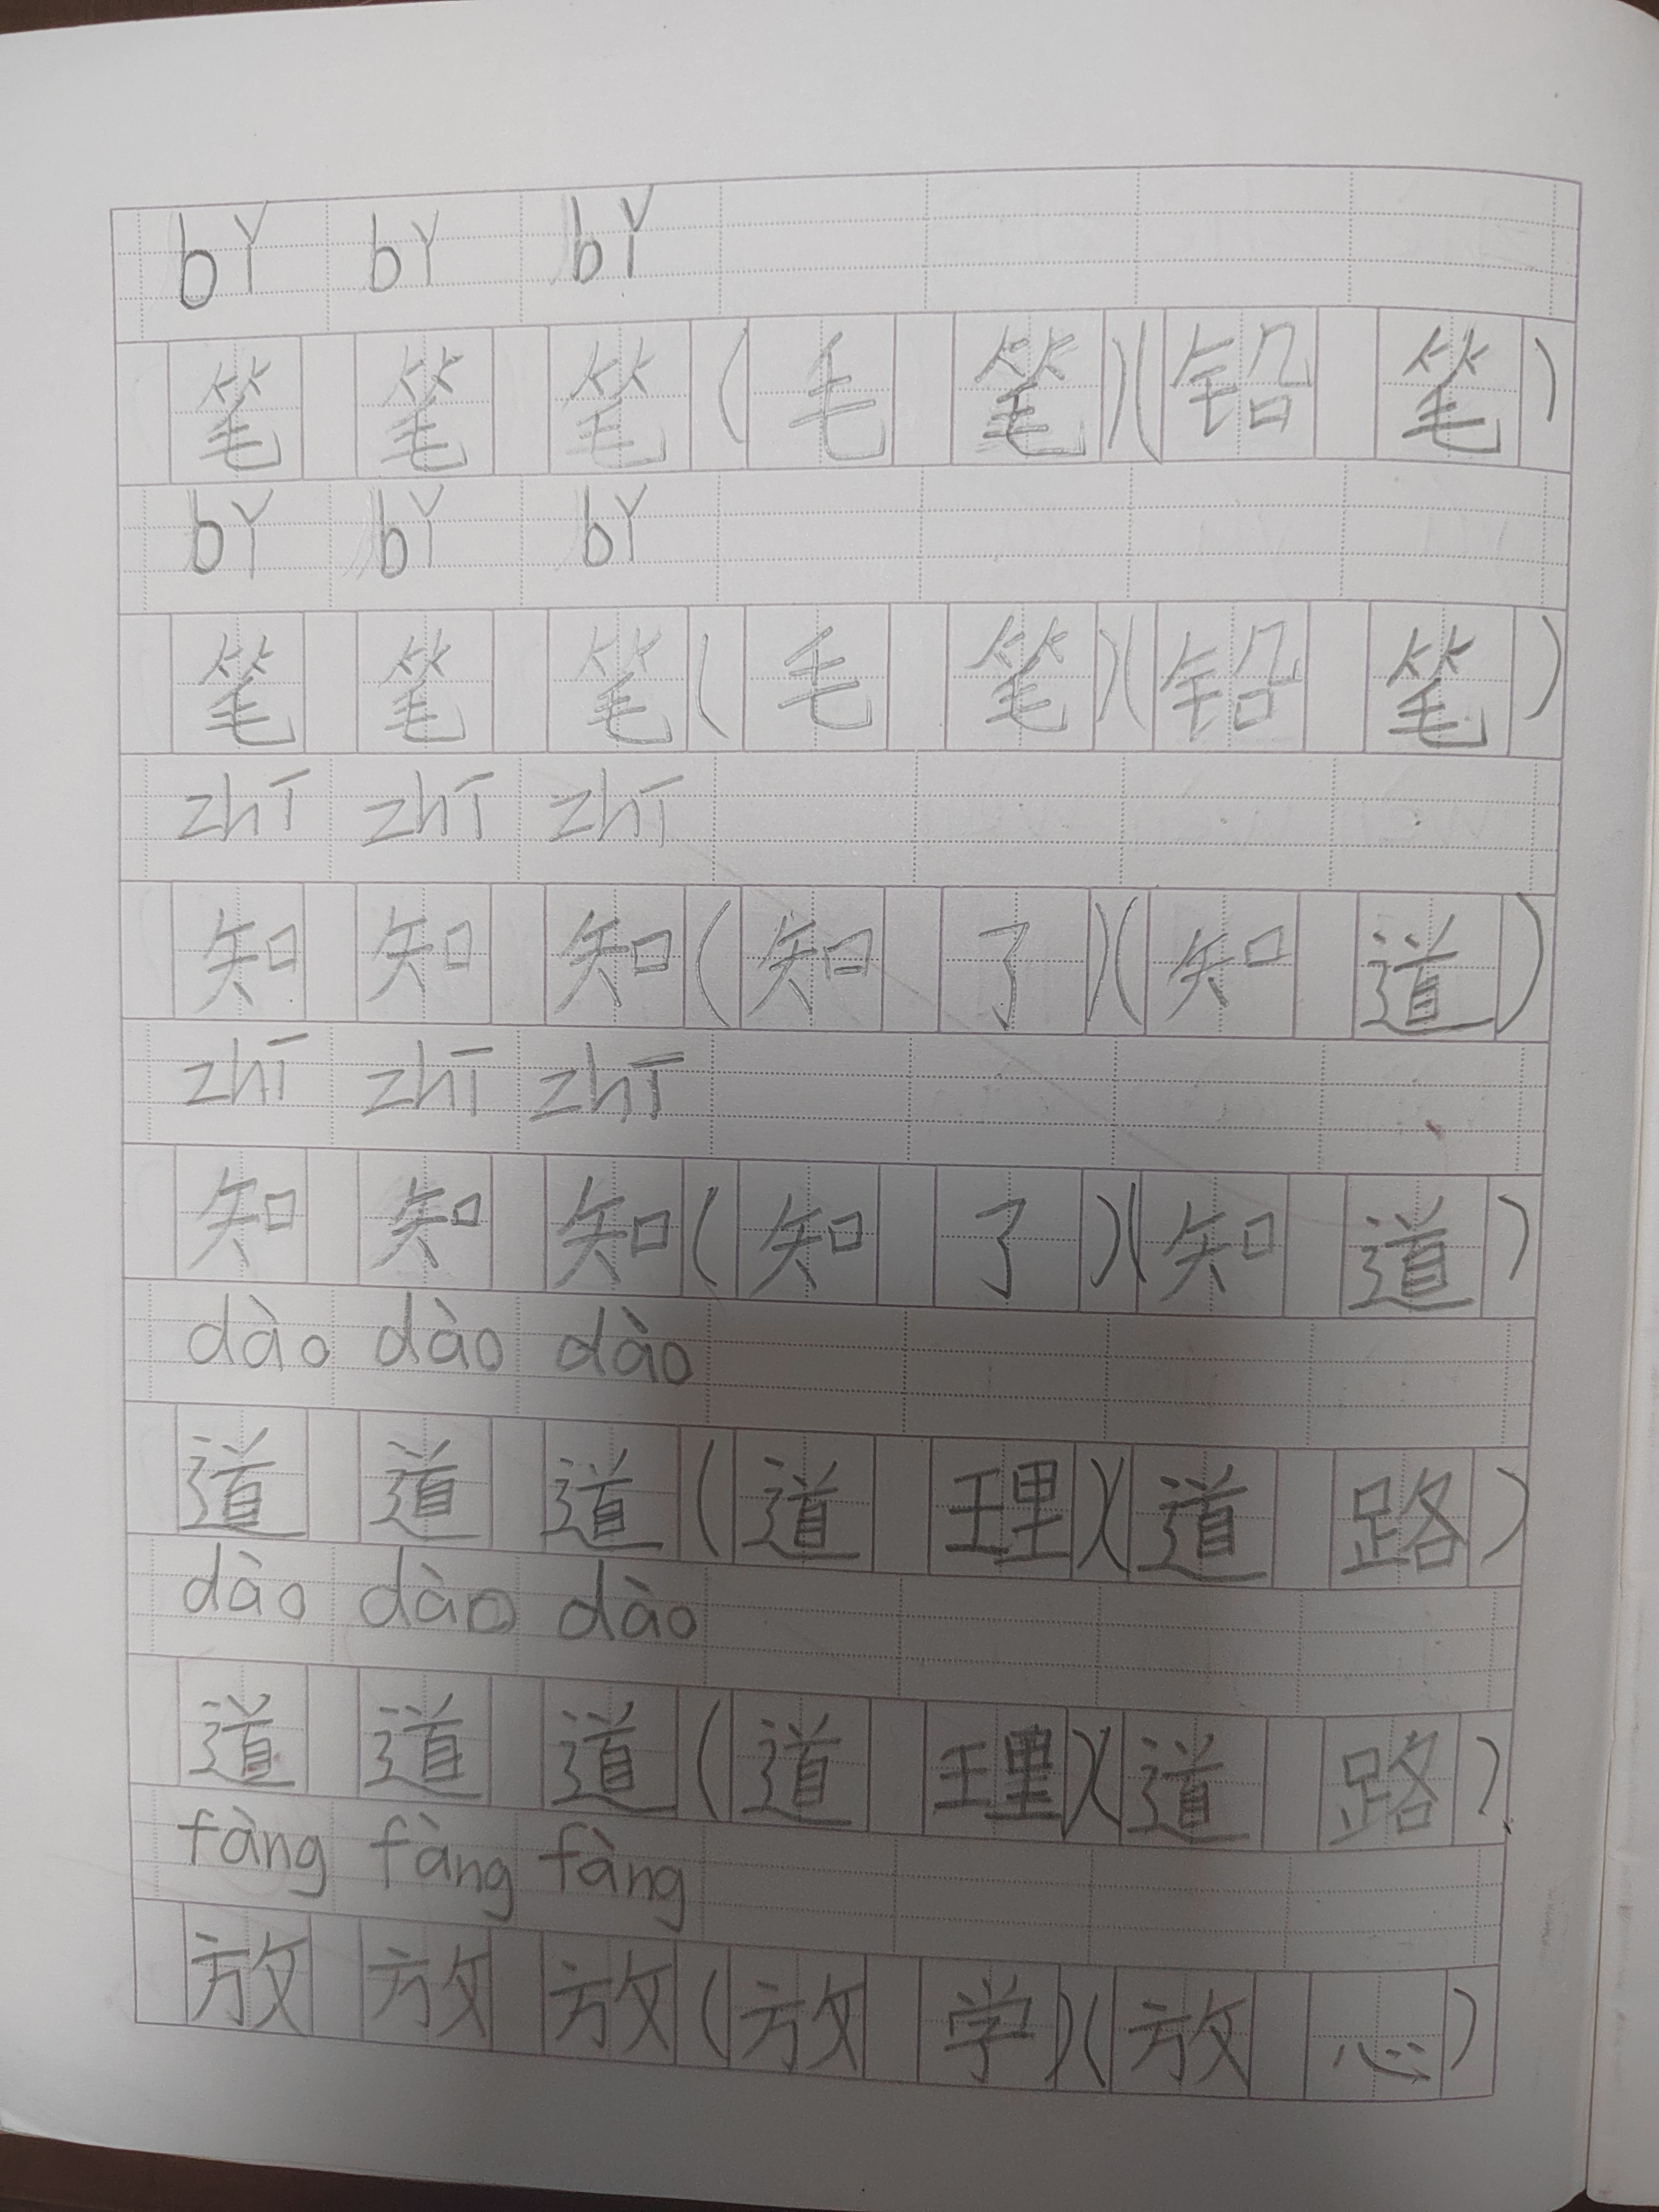 bǐ bǐ bǐ
笔 笔 笔 ( 毛 笔 )( 铅 笔 )
bǐ bǐ bǐ
笔 笔 笔 ( 毛 笔 )( 铅 笔 )
zhī zhī zhī
知 知 知 ( 知 了 )( 知 道 )
zhī zhī zhī
知 知 知 ( 知 了 )( 知 道 )
dào dào dào
道 道 道 ( 道 理 )( 道 路 )
dào dào dào
道 道 道 ( 道 理 )( 道 路 )
fàng fàng fàng
放 放 放 ( 放 学 )( 放 心 )